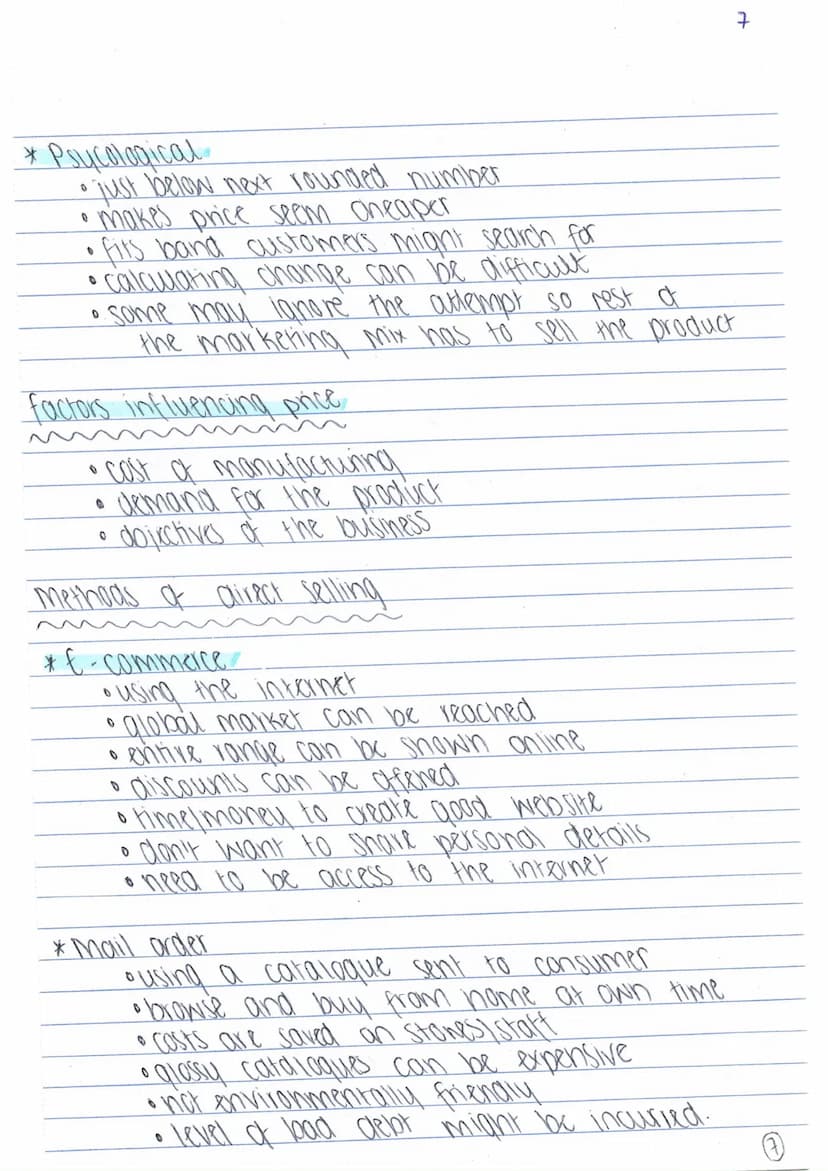 7
* Psycological
• just below next rounded number
• makes price seem cheaper
• fits band customers might search for
• calculating change can be difficult
• some may ignore the attempt so rest of
the marketing mix has to sell the product
factors influencing price
• cost of manufacturing
• demand for the product
• dojectives of the business
Methods of direct selling
* E-commerce
• using the internet
• global market can be reached
• entire range can be shown online
• discounts can be offered
• time/money to create good website
• don't want to share personal details
• need to be access to the internet
* Mail order
• using a catalogue sent to consumer
• browse and buy from home at own time
• costs are saved on stores/staff
• glossy catalogues can be expensive
• not environmentally friendly
• level of bad debt might be incurred.
7